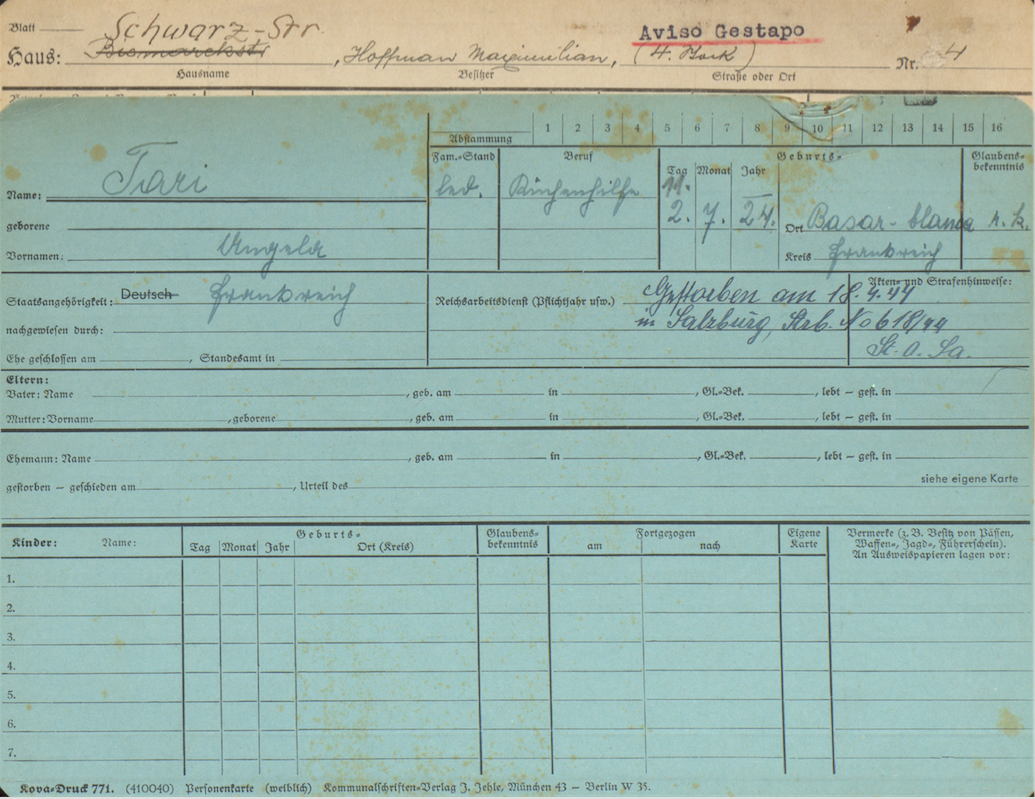 Blatt Schwarz-Str.
Aviso Gestapo
Haus: Bismarckstr , Hoffman Maximilian, Nr. 4
Hausname Besitzer Straße oder Ort
Abstammung 1 2 3 4 5 6 7 8 9 10 11 12 13 14 15 16
Fam.=Stand Beruf Geburts= Glaubens-
bekenntnis
Tag Monat Jahr
Name: Tari led. Küchenhilfe 11.
geborene 2. 7. 24. Ort Basar-blanca r. k.
Vornamen: Angela Kreis Frankreich
Akten= und Strafenhinweise:
Staatsangehörigkeit: Deutsch Frankreich Reichsarbeitsdienst (Pflichtjahr usw.) Gestorben am 18.4.44
nachgewiesen durch: in Salzburg, Strb. No 618/44
Ehe geschlossen am , Standesamt in St. A. Sa.
Eltern:
Vater: Name , geb. am in , Gl.=Bek. , lebt — gest. in
Mutter: Vorname , geborene , geb. am in , Gl.=Bek. , lebt — gest. in
Ehemann: Name , geb. am in , Gl.=Bek. , lebt — gest. in
gestorben — geschieden am , Urteil des siehe eigene Karte
Kinder: Name: Geburts= Glaubens-
bekenntnis Fortgezogen Eigene
Karte Vermerke (z. B. Besitz von Pässen,
Waffen=, Jagd=, Führerschein).
An Ausweispapieren lagen vor:
Tag Monat Jahr Ort (Kreis) am nach
1.
2.
3.
4.
5.
6.
7.
Kova=Druck 771. (410040) Personenkarte (weiblich) Kommunalschriften=Verlag J. Jehle, München 43 — Berlin W 35.